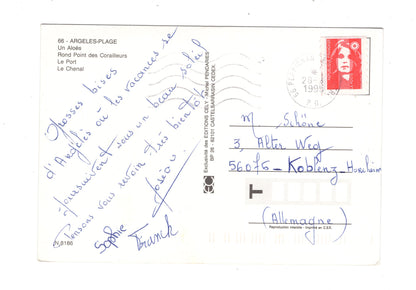 66 - ARGELES-PLAGE
Un Aloës
Rond Point des Corailleurs
Le Port
Le Chenal
Grosses bises
d'Argelès où les vacances se
poursuivent sous un beau soleil
Pensons vous revoir très bientôt
Sophie
Franck
IV 5186
Exclusivité des EDITIONS CELY - Michel PENDARIES
BP 26 - 82101 CASTELSARRASIN CEDEX
M Schöne
3, Alter Weg
56075 - Koblenz-Horchheim
(Allemagne)
Reproduction interdite - Imprimé en C.E.E.